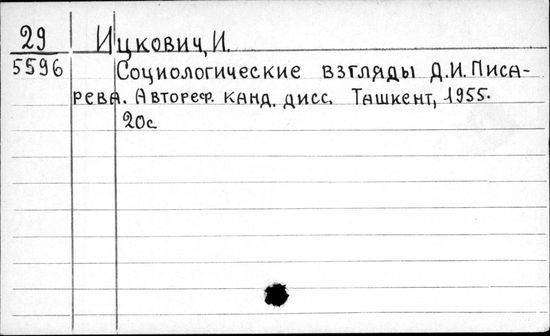 29 Ицкович, И.
5596 Социологические взгляды Д.И. Писа-
рева. Автореф. канд. дисс. Ташкент, 1955.
20с.